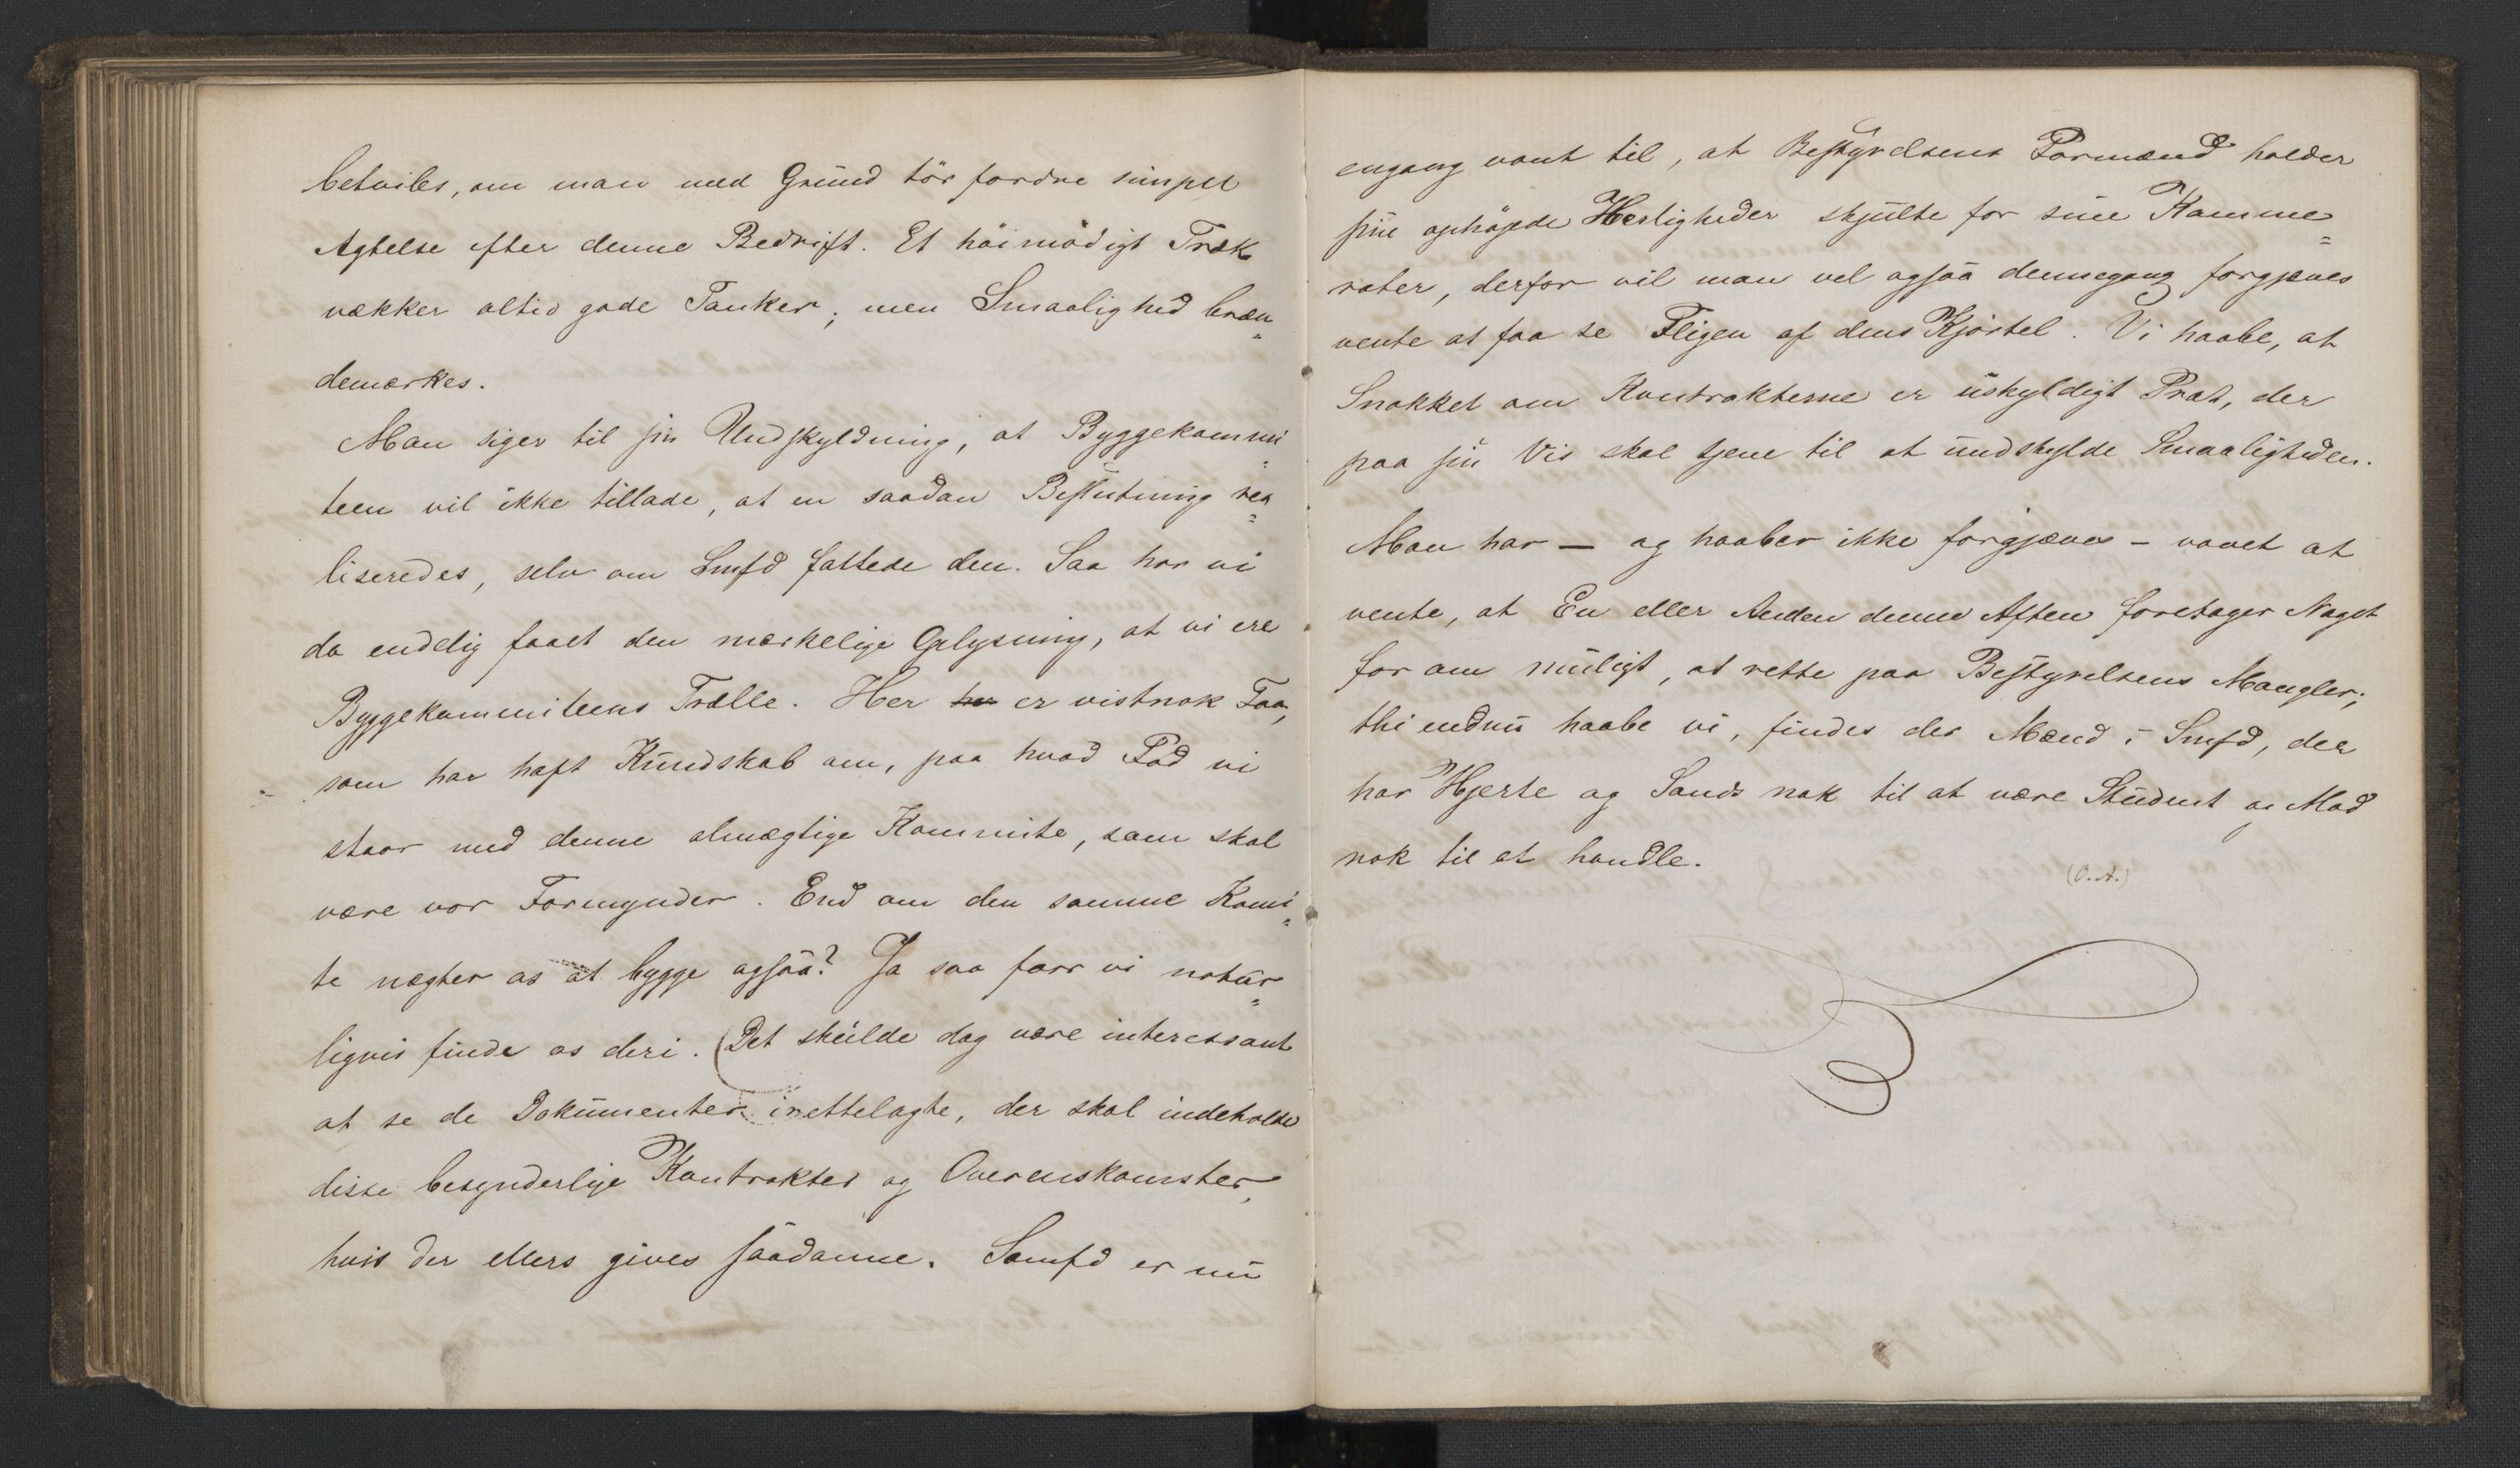 betviles, om man med Grund tör fordre simpel
Agtelse efter denne Bedrift. Et höimodigt Træk
vækker altid gode Tanker; men Smaalighed bræn=
demærkes.
Man siger til sin Undskyldning, at Byggekommi=
teen vil ikke tillade, at en saadan Beslutning rea=
liseredes, selv om Smfd fattede den. Saa har vi
da endelig faaet den mærkelige Oplysning, at vi ere
Byggekommiteens Trælle. Her har er vistnok Faa,
som har haft Kundskab om, paa hvad Fod vi
staar med denne almægtige Kommite, som skal
være vor Formynder. End om den samme Komi=
te nægter os at bygge ogsaa? Ja saa faar vi natur=
ligvis finde os deri. (Det skulde dog være interessant
at se de Dokumenter irettelagte, der skal indeholde
disse besynderlige Kontrakter og Overenskomster,
hvis der ellers gives saadanne. Samfd er nu
engang vant til, at Bestyrelsens Formænd holder
sine ophöjede Herligheder skjulte for sine Kamme=
rater, derfor vil man vel ogsaa dennegang forgjæves
vente at faa se Fligen af dens Kjortel. Vi haabe, at
Snakket om Kontrakterne er uskyldigt Prat, der
paa sin Vis skal tjene til at undskylde Smaaligheden.
Man har — og haaber ikke forgjæves — vovet at
vente, at En eller Anden denne Aften foretager Noget
for om muligt, at rette paa Bestyrelsens Mangler;
thi endnu haabe vi, findes der Mænd i Smfd, der
har Hjerte og Sands nok til at være Student og Mod
nok til at handle.
(O.A.)